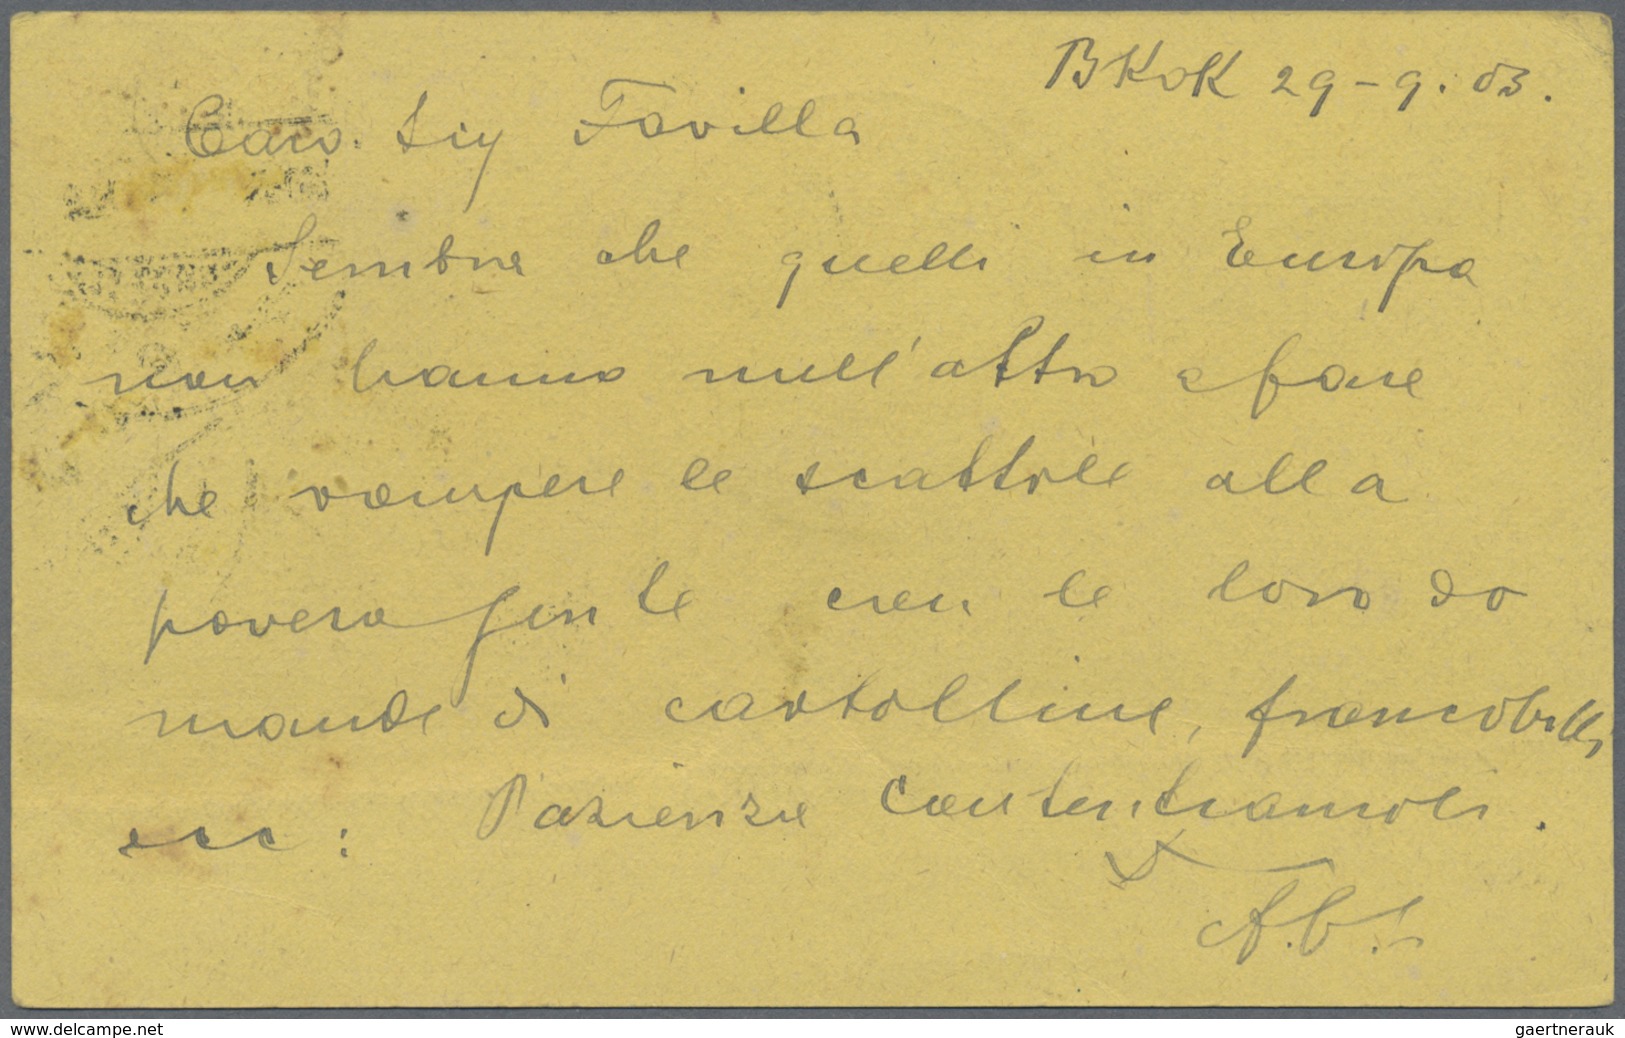 BKoK 29-9.03.
Caro Sig Favilla
Sembra che quelli in Europa
non hanno null'altro a fare
che rompere le scattole alla
povera gente con le loro do
mande di cartolline, francobolli
ecc: Pazienza Contentiamoli.
A.b.
www.delcampe.net
gaertnerauk